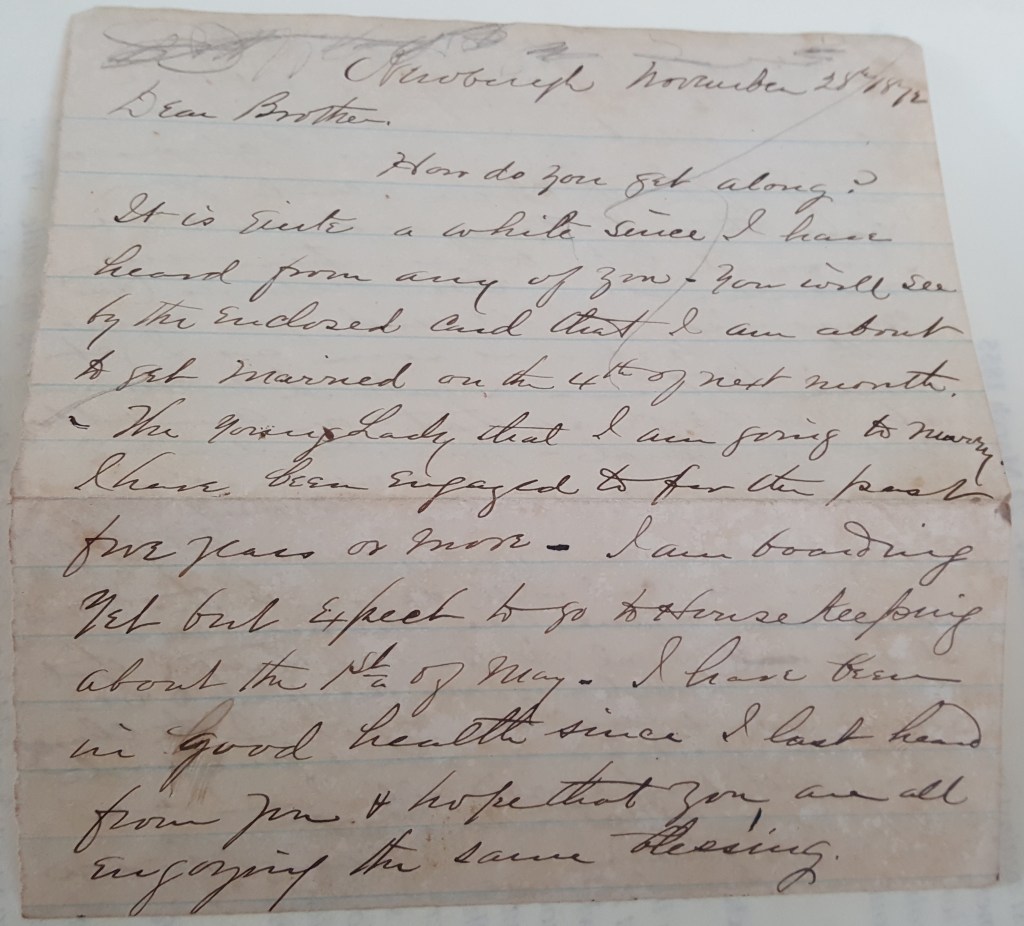 Newburgh November 28th/1872
Dear Brother.
How do you get along?
It is quite a while since I have
heard from any of you - You will see
by the Enclosed Card that I am about
to get Married on the 4th of next month.
- The Young Lady that I am going to marry.
I have been Engaged to for the past
five years or more - I am boarding
Yet but Expect to go to House Keeping
about the 1st of May - I have been
in good health since I last heard
from you & hope that you are all
Engoying the same blessing.